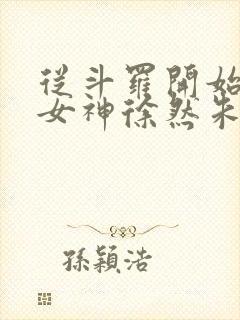 從斗羅開始
女神徐然朱
孫穎浩